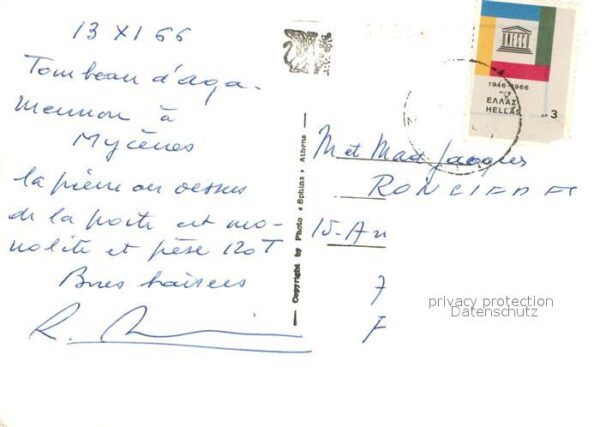 13 XI 66
Tombeau d'aga-
memnon à
Mycènes
la pierre au dessus
de la porte est mo-
nolite et pèse 120T
Bons baisers
R.
Copyright by Photo «Sphinx» Athens
1946-1966
ΕΛΛΑΣ
HELLAS
ΔΡ 3
M et Mad Jacques
15. An
7
F
privacy protection
Datenschutz